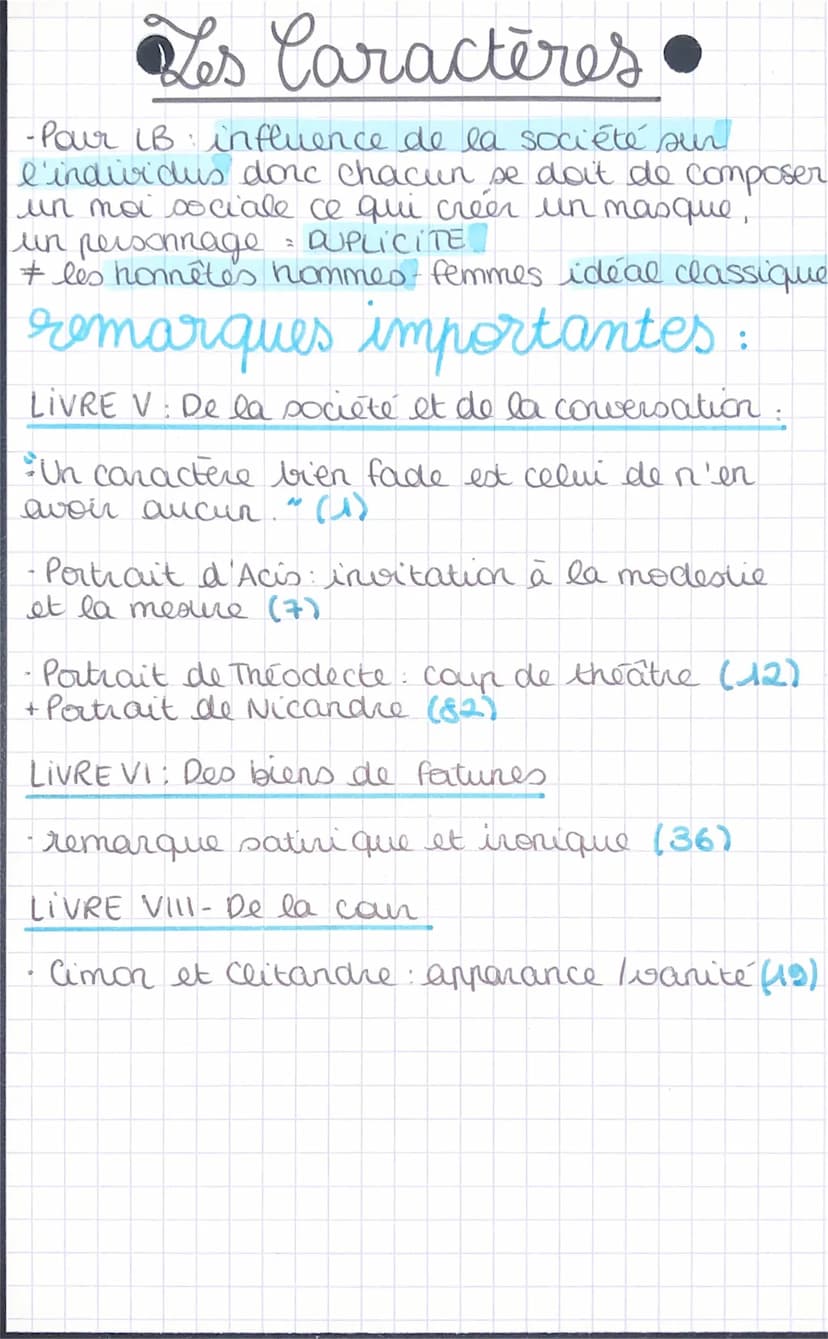 Les Caractères
-Pour LB : influence de la société sur
l'individus donc chacun se doit de composer
un moi sociale ce qui créer un masque,
un personnage = DUPLICITE
≠ les honnêtes hommes - femmes idéal classique
remarques importantes :
LIVRE V : De la société et de la conversation :
"Un caractère bien fade est celui de n'en
avoir aucun." (1)
- Portrait d'Acis : invitation à la modestie
et la mesure (7)
· Portrait de Théodecte : coup de théâtre (12)
+ Portrait de Nicandre (82)
LIVRE VI : Des biens de fortunes
· remarque satirique et ironique (36)
LIVRE VIII - De la cour
· Cimon et Clitandre : apparance / vanité (19)